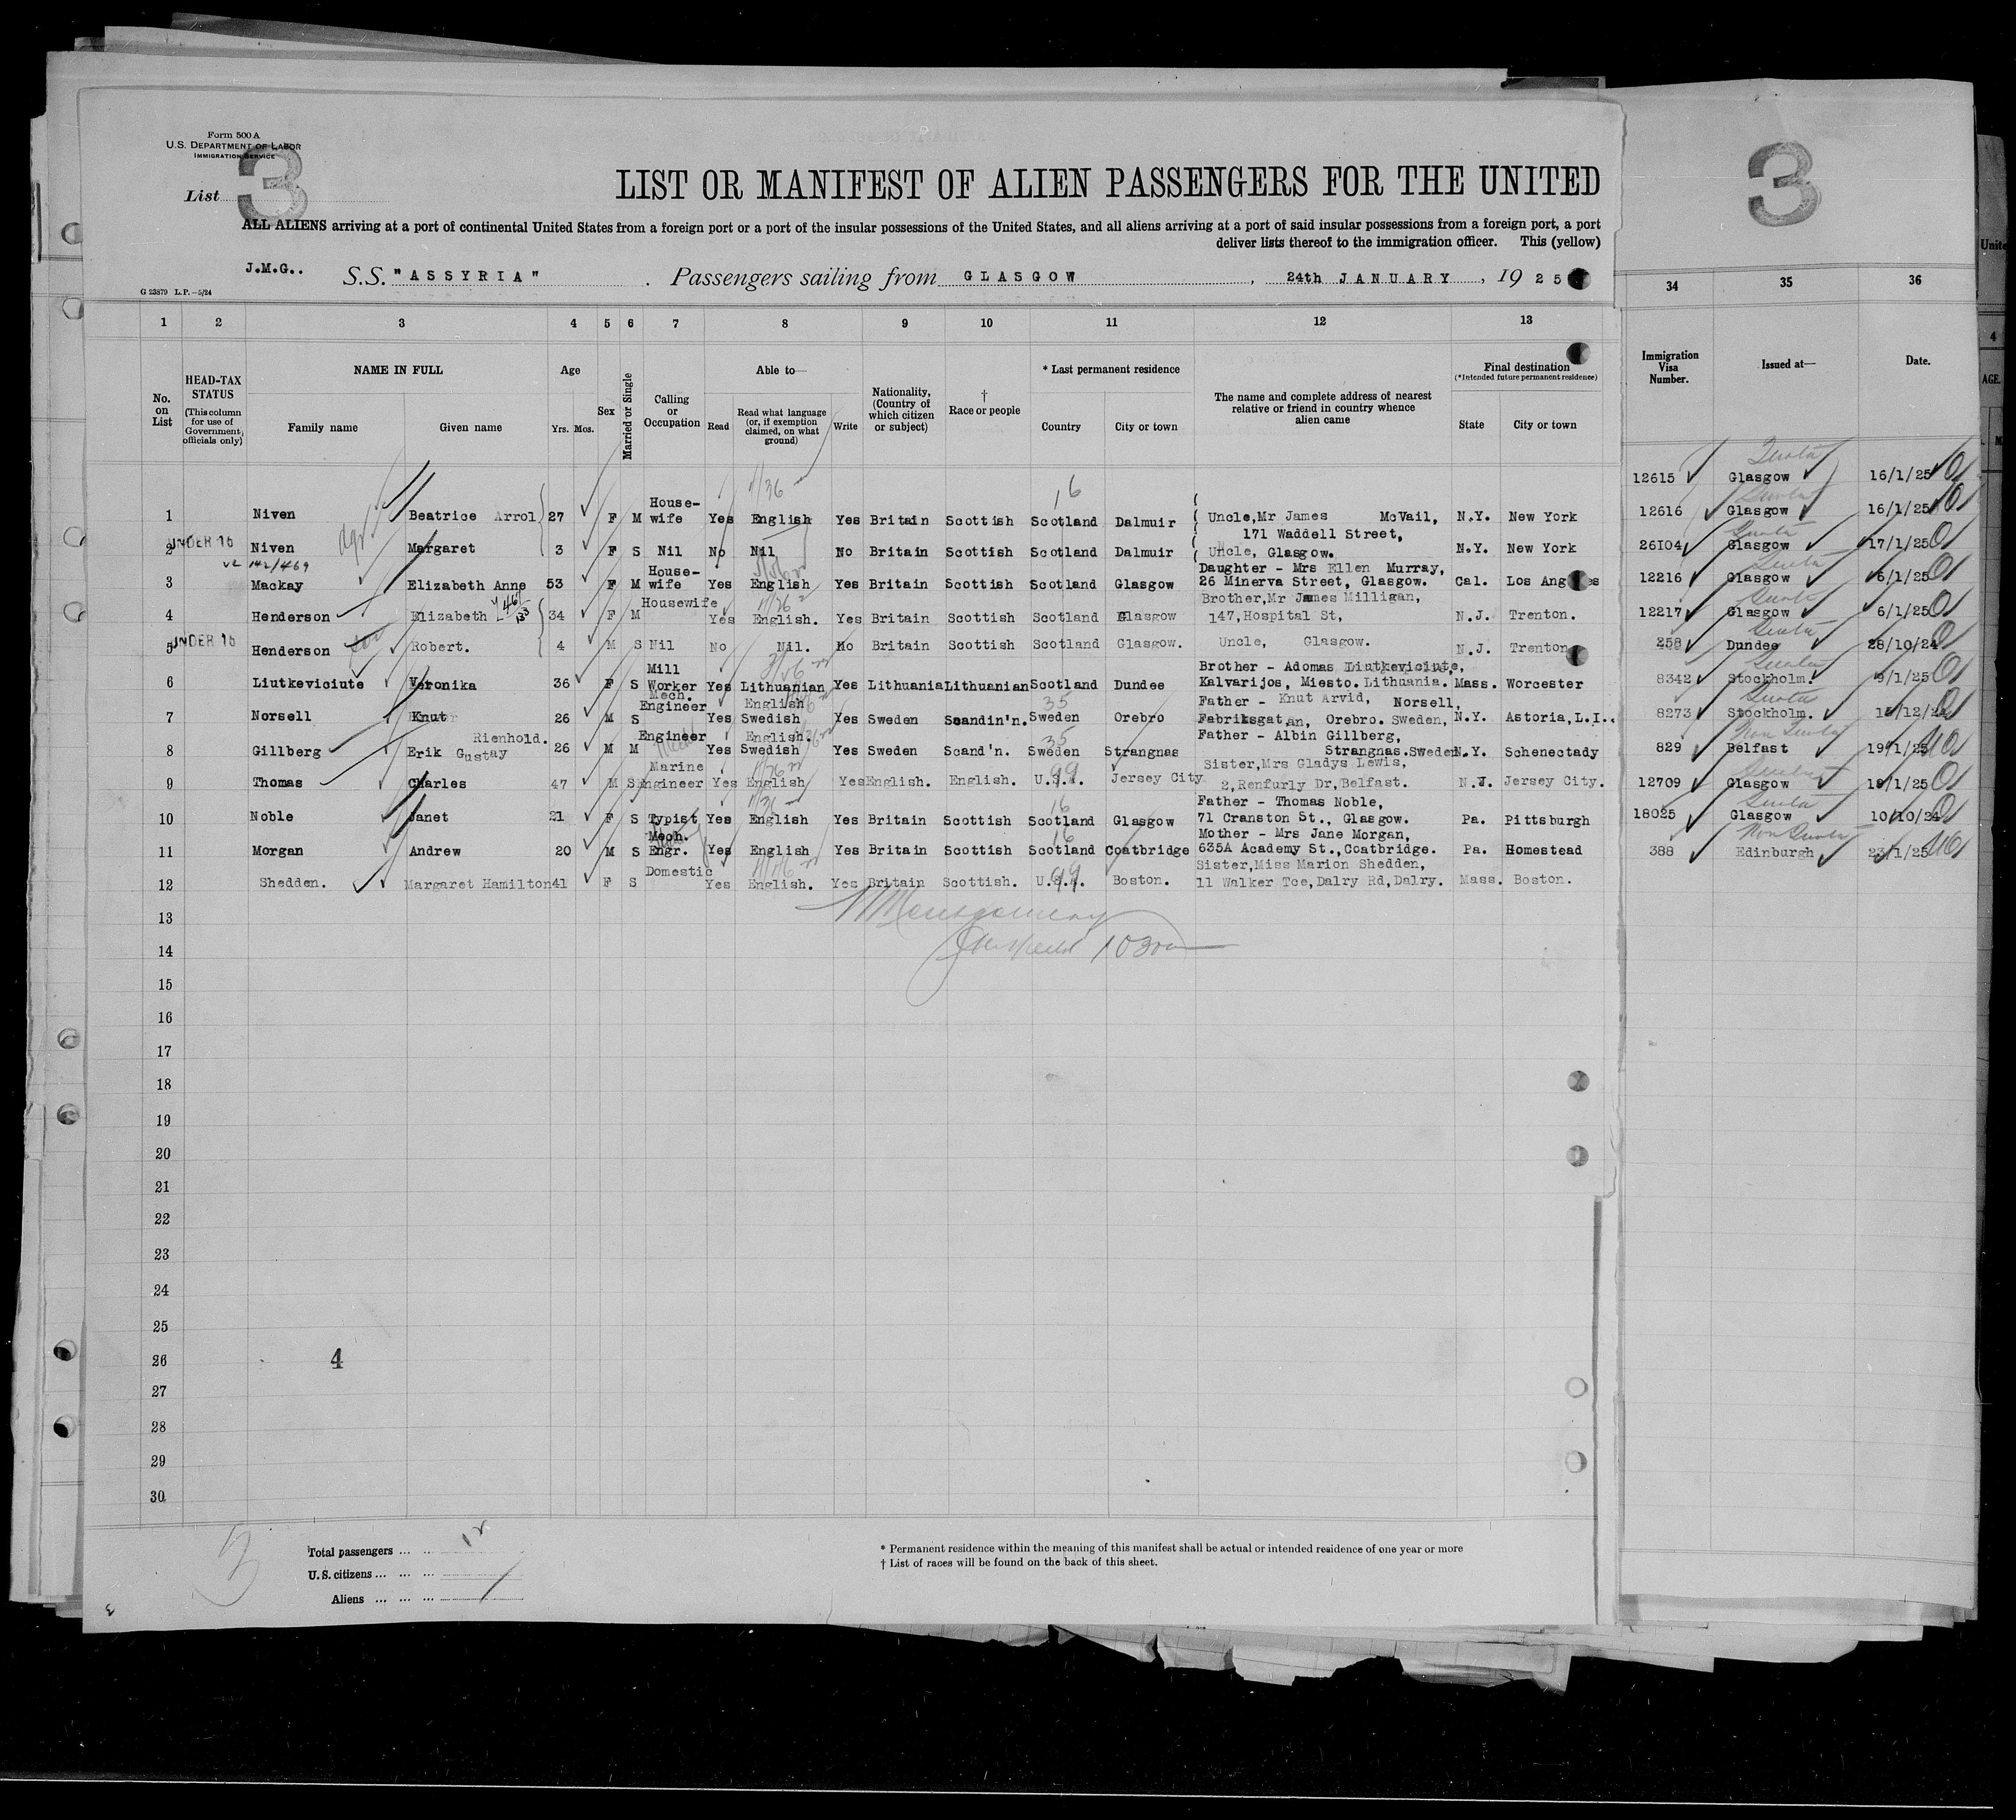 Form 500 A
U.S. DEPARTMENT OF LABOR
IMMIGRATION SERVICE
List 3
3
LIST OR MANIFEST OF ALIEN PASSENGERS FOR THE UNITED
ALL ALIENS arriving at a port of continental United States from a foreign port or a port of the insular possessions of the United States, and all aliens arriving at a port of said insular possessions from a foreign port, a port
deliver lists thereof to the immigration officer. This (yellow)
J.M.G..
S.S. "ASSYRIA" . Passengers sailing from GLASGOW, 24th JANUARY, 1925
G 23879 L.P.—5/24
1 2 3 4 5 6 7 8 9 10 11 12 13 34 35 36
No. on List
HEAD-TAX STATUS (This column for use of Government officials only)
NAME IN FULL Family name Given name
Age Yrs. Mos.
Sex
Married or Single
Calling or Occupation
Able to— Read Read what language (or, if exemption claimed, on what ground) Write
Nationality, (Country of which citizen or subject)
† Race or people
* Last permanent residence Country City or town
The name and complete address of nearest relative or friend in country whence alien came
Final destination (*Intended future permanent residence) State City or town
Immigration Visa Number.
Issued at—
Date.
Unite
4
AGE.
1 Niven Beatrice Arrol 27 F M House-wife Yes English Yes Britain Scottish Scotland Dalmuir Uncle,Mr James McVail, 171 Waddell Street, N.Y. New York
UNDER 16
2 Niven Margaret 3 F S Nil No Nil No Britain Scottish Scotland Dalmuir Uncle, Glasgow. N.Y. New York
3 Mackay Elizabeth Anne 53 F M House-wife Yes English Yes Britain Scottish Scotland Glasgow Daughter - Mrs Ellen Murray, 26 Minerva Street, Glasgow. Cal. Los Ang es
4 Henderson Elizabeth 34 F M Housewife Yes English. Yes Britain Scottish Scotland Glasgow Brother,Mr James Milligan, 147,Hospital St, N.J. Trenton.
UNDER 16
5 Henderson Robert. 4 M S Nil No Nil. No Britain Scottish Scotland Glasgow. Uncle, Glasgow. N.J. Trenton
6 Liutkeviciute Veronika 36 F S Mill Worker Yes Lithuanian Yes Lithuania Lithuanian Scotland Dundee Brother - Adomas Liutkeviciute, Kalvarijos, Miesto. Lithuania. Mass. Worcester
7 Norsell Knut 26 M S Mech. Engineer Yes English Swedish Yes Sweden Scandin'n. Sweden Orebro Father - Knut Arvid, Norsell, Fabriksgatan, Orebro. Sweden, N.Y. Astoria,L.I.
8 Gillberg Erik Rienhold. Gustav 26 M M Engineer Yes English. Swedish Yes Sweden Scand'n. Sweden Strangnas Father - Albin Gillberg, Strangnas.Sweden N.Y. Schenectady
9 Thomas Charles 47 M S Marine Engineer Yes English Yes English. English. U.S.A. Jersey City Sister,Mrs Gladys Lewis, 2,Renfurly Dr,Belfast. N.J. Jersey City.
10 Noble Janet 21 F S Typist Yes English Yes Britain Scottish Scotland Glasgow Father - Thomas Noble, 71 Cranston St., Glasgow. Pa. Pittsburgh
11 Morgan Andrew 20 M S Mech. Engr. Yes English Yes Britain Scottish Scotland Coatbridge Mother - Mrs Jane Morgan, 635A Academy St.,Coatbridge. Pa. Homestead
12 Shedden. Margaret Hamilton 41 F S Domestic Yes English. Yes Britain Scottish. U.S.A. Boston. Sister,Miss Marion Shedden, 11 Walker Tce,Dalry Rd,Dalry. Mass. Boston.
12615 Quota Glasgow 16/1/25
12616 Quota Glasgow 16/1/25
26104 Quota Glasgow 17/1/25
12216 Quota Glasgow 6/1/25
12217 Quota Glasgow 6/1/25
258 Quota Dundee 28/10/24
8342 Quota Stockholm. 9/1/25
8273 Quota Stockholm. 15/12/24
829 Non Quota Belfast 19/1/25
12709 Quota Glasgow 19/1/25
18025 Quota Glasgow 10/10/24
388 Non Quota Edinburgh 23/1/25
13
14
15
16
17
18
19
20
21
22
23
24
25
26 4
27
28
29
30
3
Total passengers ... ... 12
U.S. citizens ... ... ...
Aliens ... ... ... ...
* Permanent residence within the meaning of this manifest shall be actual or intended residence of one year or more
† List of races will be found on the back of this sheet.